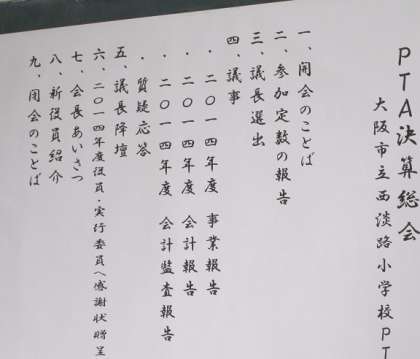 PTA決算総会
大阪市立西淡路小学校PT
一、開会のことば
二、参加定数の報告
三、議長選出
四、議事
・二〇一四年度 事業報告
・二〇一四年度 会計報告
・二〇一四年度 会計監査報告
・質疑応答
五、議長降壇
六、二〇一四年度役員・実行委員へ感謝状贈呈
七、会長あいさつ
八、新役員紹介
九、閉会のことば